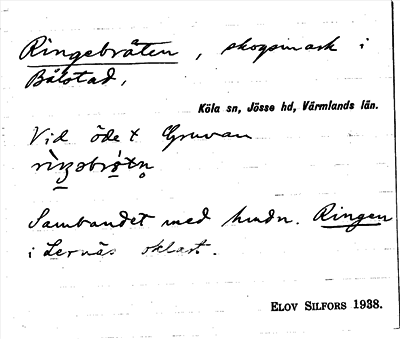 Ringebråten, skogsmark i
Bålstad,
Köla sn, Jösse hd, Värmlands län.
Vid ödet Gruvan
Sambandet med hmdn. Ringen
i Lernäs oklart.
ELOV SILFORS 1938.